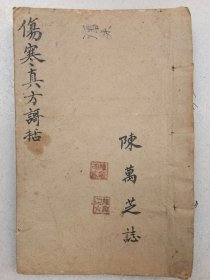 傷寒真方謌括
陳萬芝誌